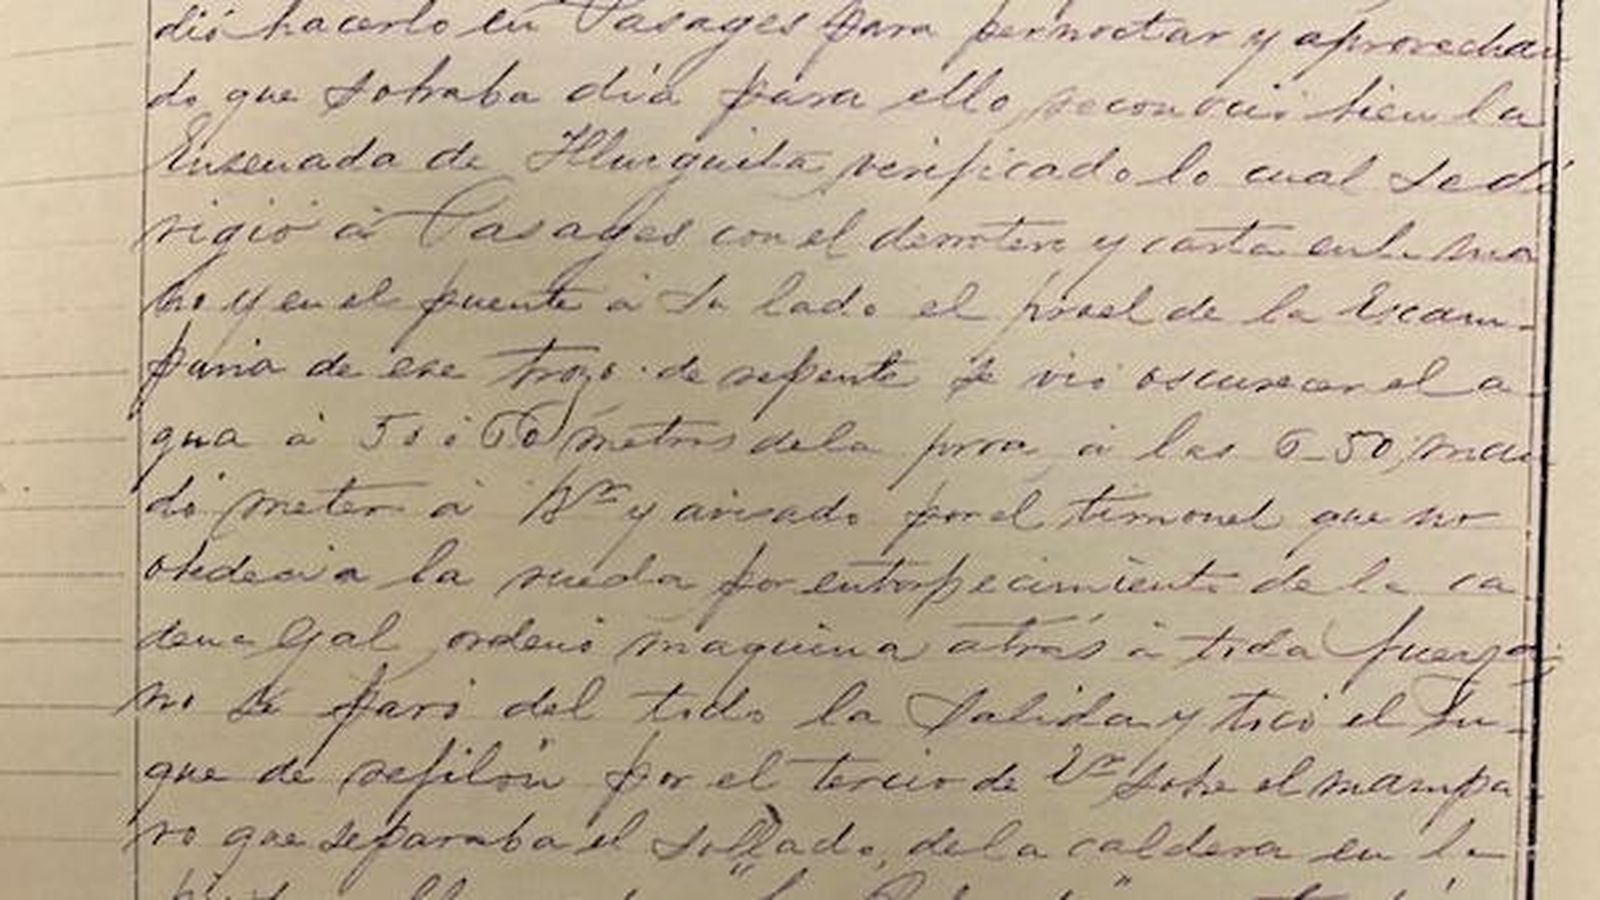 dió hacerlo en Pasages para pernoctar y aprovechan
do que sobraba dia para ello reconoció bien la
Ensenada de Illurguita verificado lo cual se di
rigió á Pasages con el derrotero y carta en la ma
no y en el puente á su lado el proel de la Escam-
pavia de ese trozo. de repente se vió oscurecer el a
gua á 50 ó 60 metros de la proa, á las 6-50, man
dó meter á Br y avisado por el timonel que no
obdecia la rueda por entorpecimiento de la ca
dena Gal ordenó maquina atrás á toda fuerza;
no se paró del todo la salida y tocó el bu-
que de refilón por el tercio de Vr sobre el mampa
ro que separaba el sollado, de la caldera en la